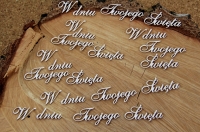 W dniu Twojego Święta
W dniu
Twojego
Święta
W dniu
Twojego
Święta
W dniu
Twojego Święta
W dniu Twojego Święta
W dniu Twojego Święta